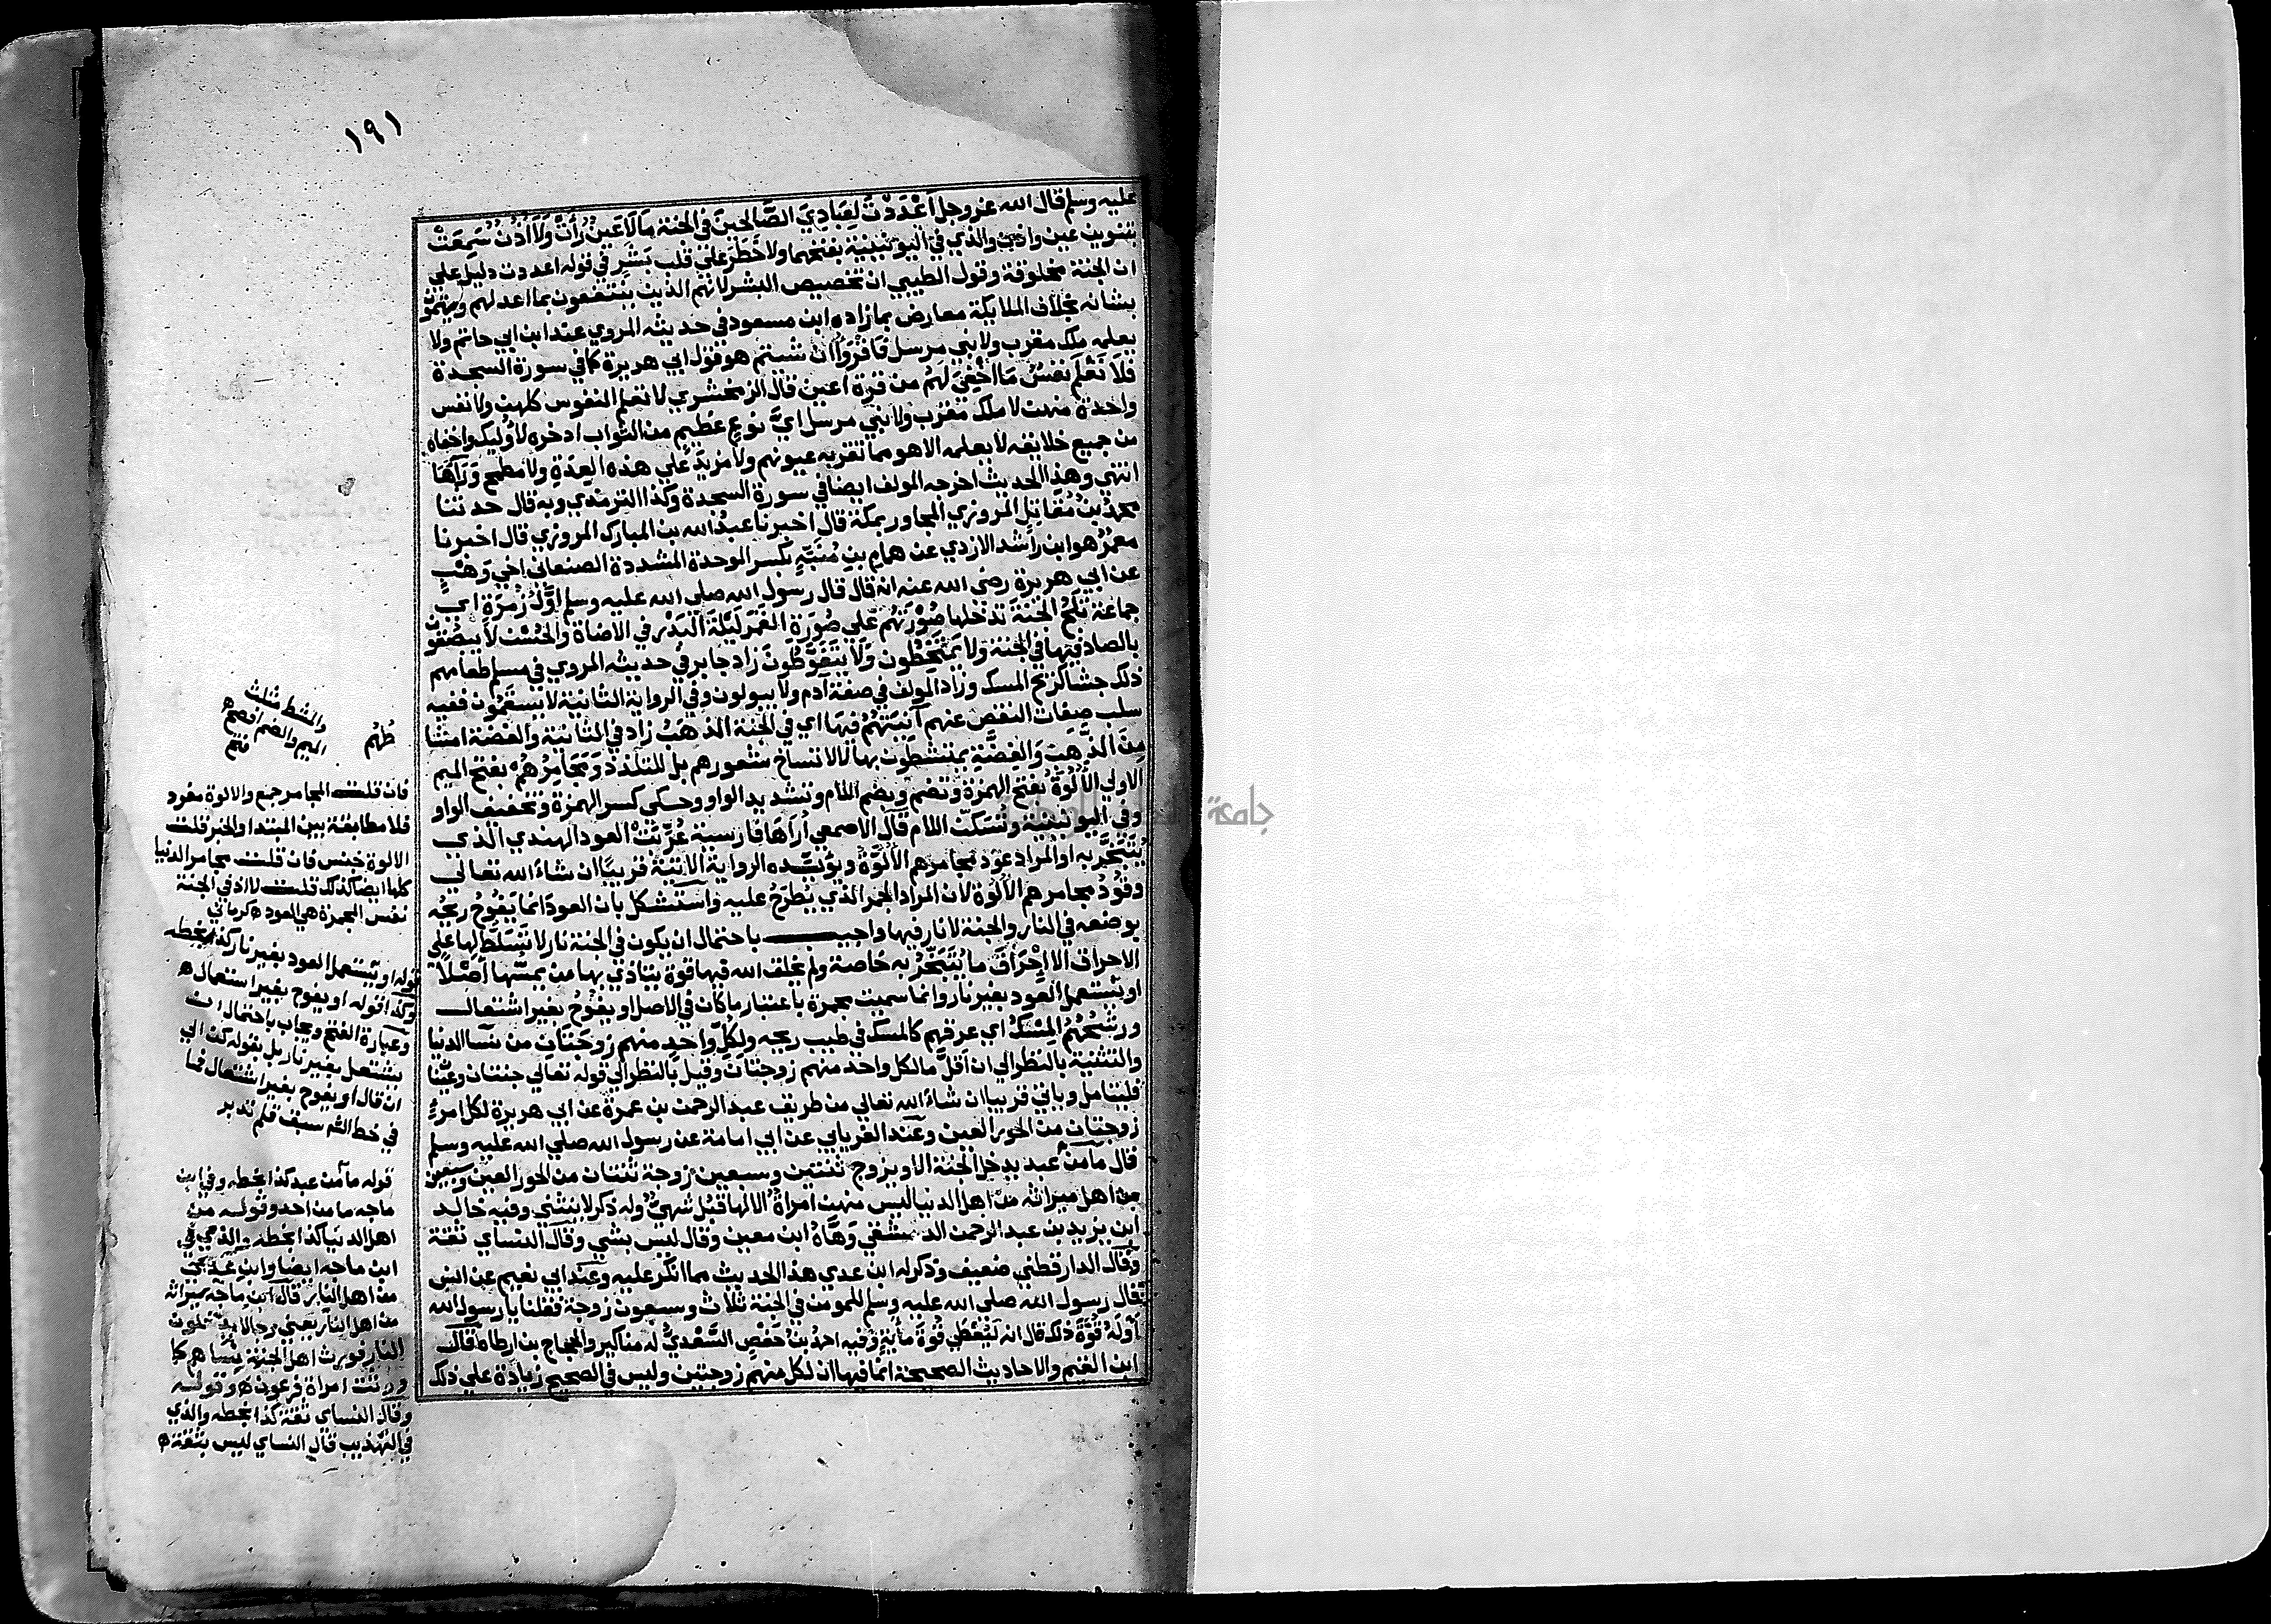 ١٩١
عليه وسلم قال الله عز وجل أَعْدَدْتُ لِعِبَادِيَ الصَّالحينَ في الجنة مَا لَا عَينٌ رأَتْ وَلَا أُذُنٌ سَمِعَتْ
بتنوين عين واذن والذي في اليونينية بفتحهما ولا خَطَرَ على قلب بَشَرٍ في قوله اعددت دليل على
ان الجنة مخلوقة وقول الطيبي ان تخصيص البشر لانهم الذين ينتفعون بما اعد لهم ويهتمون
بشانه بخلاف الملايكة معارض بما زاده ابن مسعود في حديثه المروي عند ابن ابي حاتم ولا
يعلمه ملك مقرب ولا نبي مرسل فَاقْرَؤُا ان شيتم هو قول ابي هريرة كما في سورة السجدة
فلَا تَعْلَم نفسٌ مَا اخْفِيَ لَهُم من قرة اعين قال الزمخشري لا تعلم النفوس كلهن ولا نفس
واحدة منهن لا ملك مقرب ولا نبي مرسل ايَّ نوعٍ عظيم من الثواب ادخره لأوليك واخفاه
من جميع خلايقه لا يعلمه الا هو مما تقر به عيونهم ولا مزيد على هذه العِدَةِ ولا مطمح وَرَآهَا
انتهي وهذا الحديث اخرجه المولف ايضا في سورة السجدة وكذا الترمذي وبه قال حدثنا
محمد بن مُقَاتِلٍ المروزي المجاور بمكة قال اخبرنا عبدُ الله بن المبارك المروزي قال اخبرنا
معمرٌ هو ابن راشد الازدي عن همام بن مُنَبِّهٍ بكسر الموحدة المشددة الصنعاني اخي وَهْبٍ
عن ابي هريرة رضى الله عنه انه قال قال رسول الله صلى الله عليه وسلم أوَّلُ زُمرَةٍ اي
جماعة تَلِجُ الجنةَ تدخلها صُوْرَتُهُم على صُورَةِ القمر لَيْلَةَ البَدْرِ في الاضاة والحُسْن لَا يبصُقُون
بالصاد فيها في الجنة ولا يمتَخِطُون وَلَا يتَغَوَّطُونَ زاد جابر في حديثه المروي في مسلم طعامهم
ذلك جشا كريح المسك وزاد المولف في صفة آدم ولا يبولون وفي الرواية الثانية لا يسقَمُون ففيه
سلب صفات النقص عنهم آنِيَتُهُمْ فيهَا اي في الجنة الذهَبُ زاد في الثانية والفضة امشاطهم
مِنَ الذَّهبِ وَالفِضَّةِ يمتشطون بها لا لاتساخ شعورهم بل للتلذذ وَمَجَامِرُهُمُ بفتح الميم
الاولى الأَلُوَّةُ بفتح الهمزة وتضم وبضم اللام وتشديد الواو وحكى كسر الهمزة وتخفيف الواو
وفي اليونينية وتُسكّن اللام قال الاصمعي أُرَاهَا فارسية عُرِّبَتْ العود الهندي الذي
يُتَبَخَّر به او المراد عود مجامرهم الالُوَّةُ ويويّده الرواية الاتية قريبًا ان شاءَ الله تعالى
وقُوْدُ مجامرهم الألوة لان المراد الجمر الذي يُطرَحُ عليه واستشكل بان العود انما يَفُوحُ ريحُه
بوضعه في النار والجنة لا نار فيها واجيب باحتمال ان يكون في الجنة نار لا تَسَلُّطَ لها على
الاحراق الا إِحْرَاقَ ما يُتَبَخَّرُ به خاصة ولم يخلق الله فيها قوة يتاذي بها من يمسّها أَصْلًا
او يُسْتعمل العود بغير نار وانما سميت مجمرة باعتبار ما كان في الاصل او يفُوحُ بغير اشتعال
ورشْحُهُمُ المِسْكُ اي عرقهم كالمسك في طيب ريحه ولكل واحدٍ منهم زوجَتَانِ من نسَآ الدنيا
والتثنية بالنظر الى ان اقلَّ ما لكل واحد منهم زوجتان وقيل بالنظر الى قوله تعالى جنتان وعَيْنَا
فليتامل وياتي قريبا ان شاءَ الله تعالى من طريق عبد الرحمن بن عمرة عن ابي هريرة لكل امرئٍ
زوجتان من الحور العين وعند الفريابي عن ابي امامة عن رسول الله صلى الله عليه وسلم
قال ما من عبد يدخل الجنة الا ويزوج ثنتين وسبعين زوجة ثنتان من الحور العين وسبعين
من اهل ميراثه من اهل الدنيا ليس منهن امراةٌ الا لها قُبُل شهيٌّ وله ذكر لا ينثني وفيه خالد
ابن يزيد بن عبد الرحمن الدمشقي وَهَّاهُ ابن معين وقال ليس بشي وقال النساي ثقة
وقال الدارقطني ضعيف وذكر له ابن عدي هذا الحديث مما انكر عليه وعند ابي نعيم عن انس
قال رسول الله صلى الله عليه وسلم للمومن في الجنة ثلاث وسبعون زوجة فقلنا يا رسول الله
أَوَلَهُ قُوَّةُ ذلك قال انه ليُعْطَى قُوةَ مأيةٍ وفيه احمدُ بنُ حَفْصٍ السَّعْديُّ له مناكير والحجاج بن ارطاه قال
ابن القيم والاحاديث الصحيحة انما فيها ان لكل منهم زوجتين وليس في الصحيح زيادة على ذلك
والمشط مثلث
الميم والضم افصح
طُهُم
فان قلت المجامر جمع والالوة مفرد
فلا مطابقة بين المبتدا والخبر قلت
الالوة جنس فان قلت مجامر الدنيا
كلها ايضا كذلك قلت لا اذ في الجنة
نفس المجمرة هي العود ه كرماني
قوله او يستعمل العود بغير نار كذا بخطه
وكذا قوله او يفوح بغير استعمال ه
وعبارة الفتح ويجاب باحتمال ان
يشتعل بغير نار بل بقوله كن الى
ان قال او يفوح بغير اشتعال فما
في خط الش سبق قلم تدبر
قوله ما من عبد كذا بخطه وفي ابن
ماجه ما من احد وقوله من
اهل الدنيا كذا بخطه والذي في
ابن ماجه ايضا وابن عدي
من اهل النار قال ابن ماجه ميراثه
من اهل النار يعني رجالا يدخلون
النار فورث اهل الجنة نساهم كما
ورثت امراة فرعون ه وقوله
وقال النساي ثقة كذا بخطه والذي
في التهذيب قال النساي ليس بثقة ه
جامعة